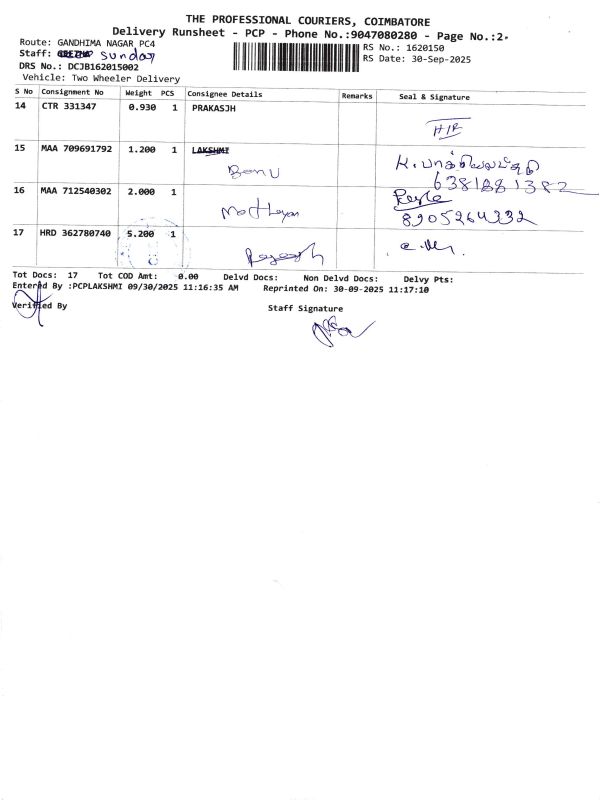 THE PROFESSIONAL COURIERS, COIMBATORE
Delivery Runsheet - PCP - Phone No.:9047080280 - Page No.:2
Route: GANDHIMA NAGAR PC4
RS No.: 1620150
Staff: Sundar
RS Date: 30-Sep-2025
DRS No.: DCJB162015002
Vehicle: Two Wheeler Delivery
S No Consignment No Weight PCS Consignee Details Remarks Seal & Signature
14 CTR 331347 0.930 1 PRAKASJH
15 MAA 709691792 1.200 1 LAKSHMI
Banu
6381881382
16 MAA 712540302 2.000 1
8905264332
17 HRD 362780740 5.200 1
Tot Docs: 17 Tot COD Amt: 0.00 Delvd Docs: Non Delvd Docs: Delvy Pts:
Entered By :PCPLAKSHMI 09/30/2025 11:16:35 AM Reprinted On: 30-09-2025 11:17:10
Verified By
Staff Signature